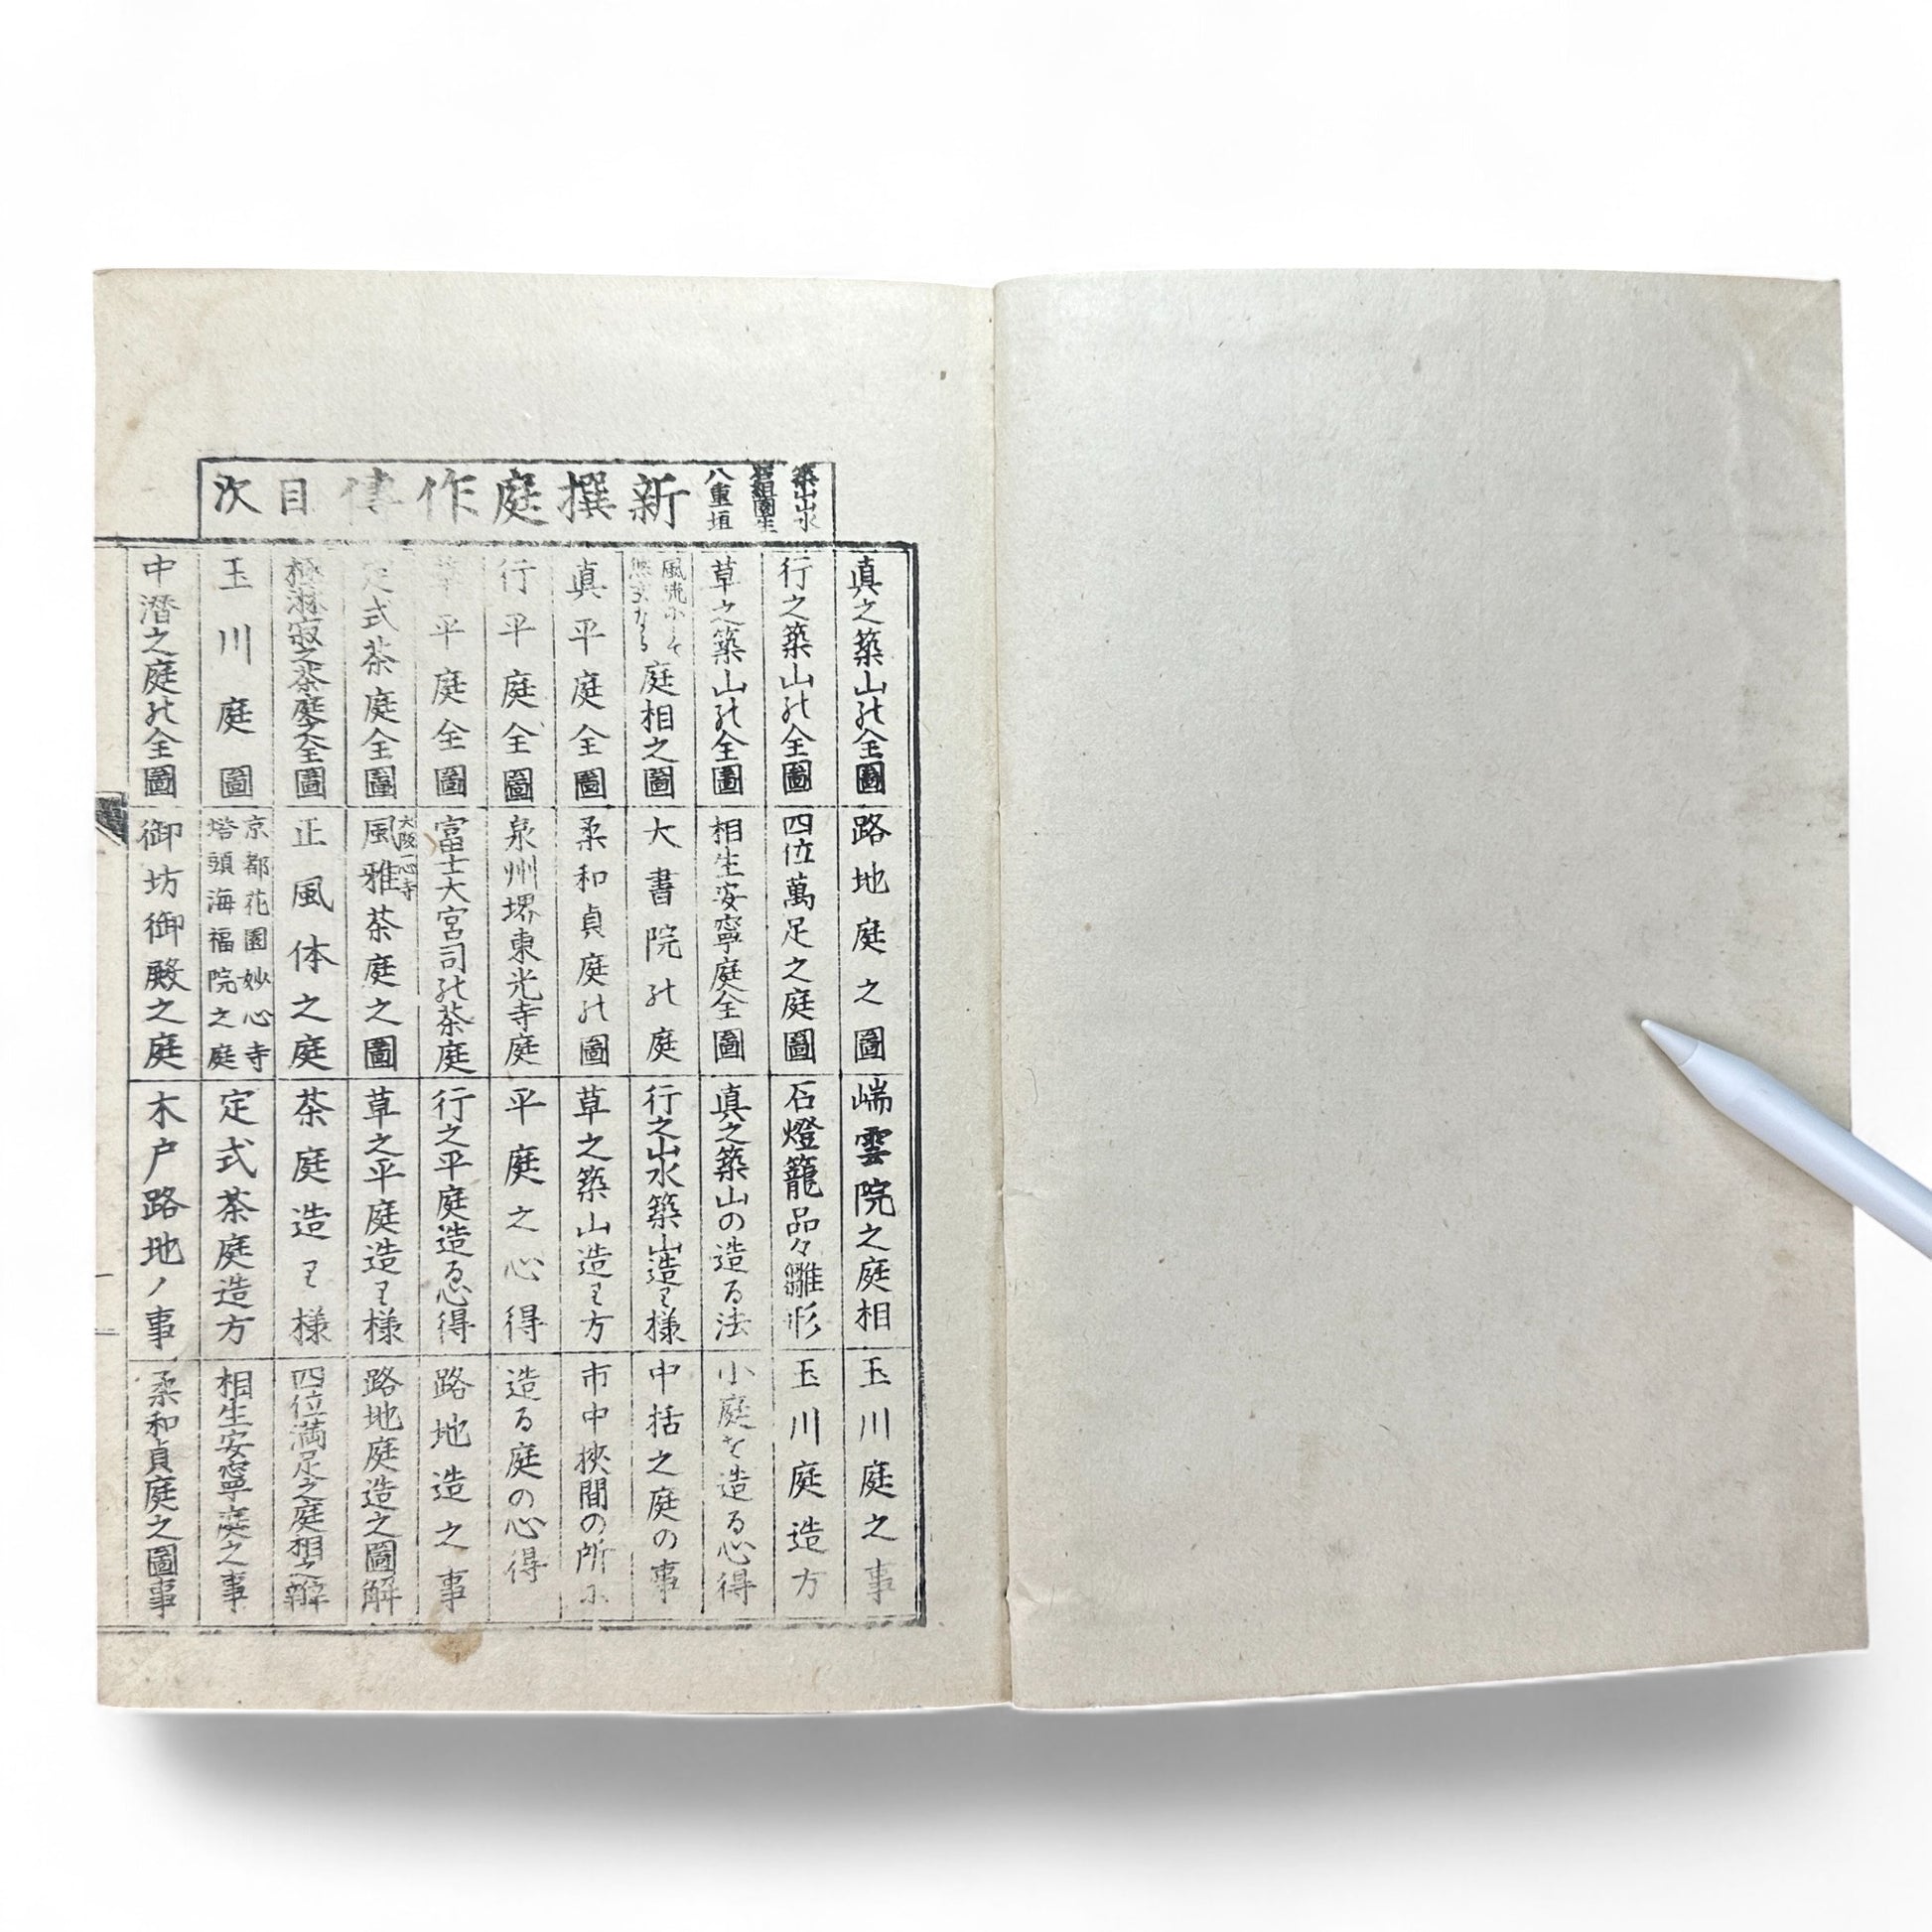 築山山水
石組園生
八重垣
新撰庭作傳目次
真之築山の全圖
行之築山の全圖
草之築山の全圖
風流にして
無雙なる
庭相之圖
真平庭全圖
行平庭全圖
草平庭全圖
定式茶庭全圖
極淋寂之茶庭之全圖
玉川庭圖
中潜之庭の全圖
路地庭之圖
四位萬足之庭圖
相生安寧庭全圖
大書院の庭
柔和貞庭の圖
泉州堺東光寺庭
富士大宮司の茶庭
大阪一心寺
風雅茶庭之圖
正風体之庭
京都花園妙心寺
塔頭海福院之庭
御坊御殿之庭
端雲院之庭相
石燈籠品々雛形
真之築山の造る法
行之山水築山造り様
草之築山造り方
平庭之心得
行之平庭造る心得
草之平庭造り様
茶庭造り様
定式茶庭造方
木戸路地ノ事
玉川庭之事
玉川庭造方
小庭を造る心得
中括之庭の事
市中挾間の所に
造る庭の心得
路地造之事
路地庭造之圖解
四位満足之庭相之辯
相生安寧庭之事
柔和貞庭之圖事